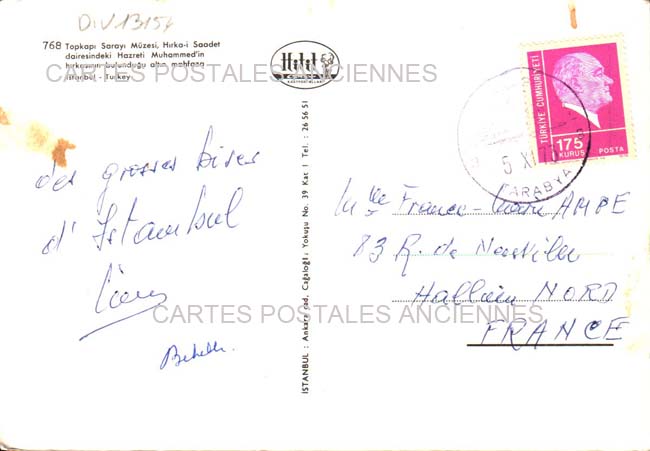 DIV13154
768 Topkapı Sarayı Müzesi, Hırka-i Saadet
dairesindeki Hazreti Muhammed'in
hırkasının bulunduğu altın mahfaza
İstanbul - Turkey
CARTES POSTALES ANCIENNES
Hitit
TÜRKİYE CUMHURİYETİ
175
KURUŞ
POSTA
5 XI
TARABYA
des grosses bises
d'Istanbul
İSTANBUL : Ankara cad. Cağaloğlu Yokuşu No. 39 Kat 1 Tel. : 26 56 51
Mlle France-Marie AMPE
83 R. de
Halluin NORD
FRANCE
CARTES POSTALES ANCIENNES